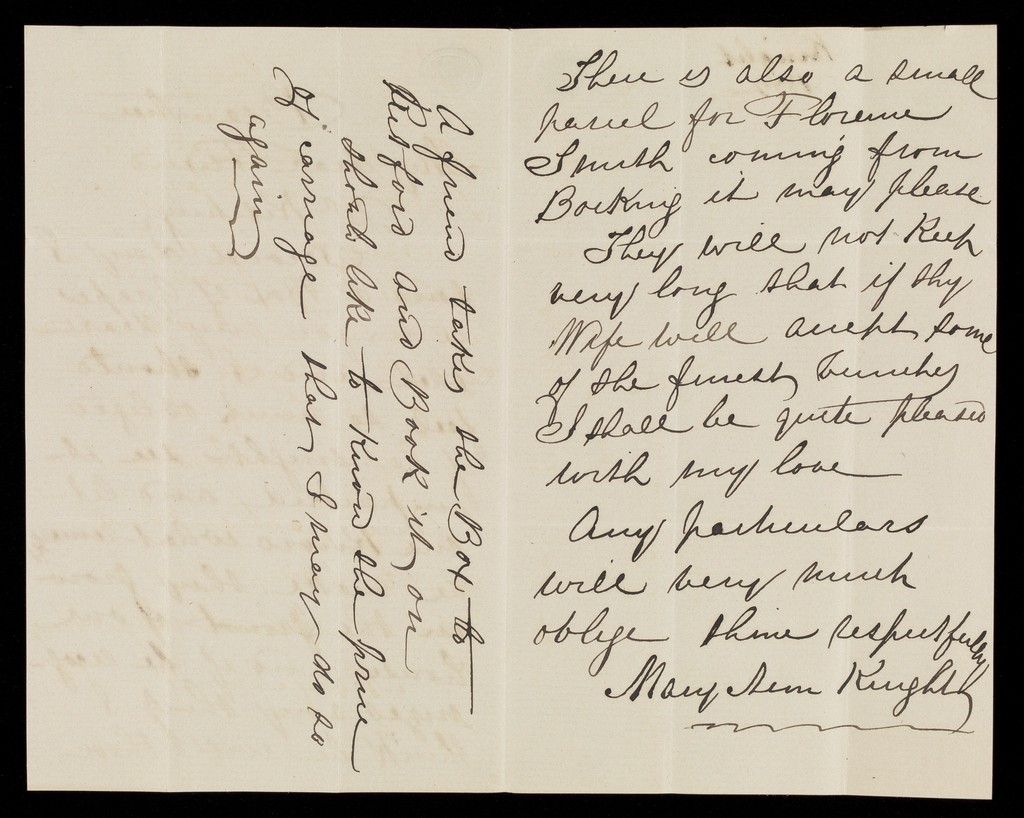 There is also a small
parcel for Florence
Smith coming from
Bocking it may please
They will not Keep
very long that if thy
Wife will accept some
of the finest bunches
I shall be quite pleased
with my love
Any particulars
will very much
oblige thine respectfully
Mary Ann Knight
A friend takes the Box to
and Book it, on
should like to Know the price
of carriage that, I may do so
again